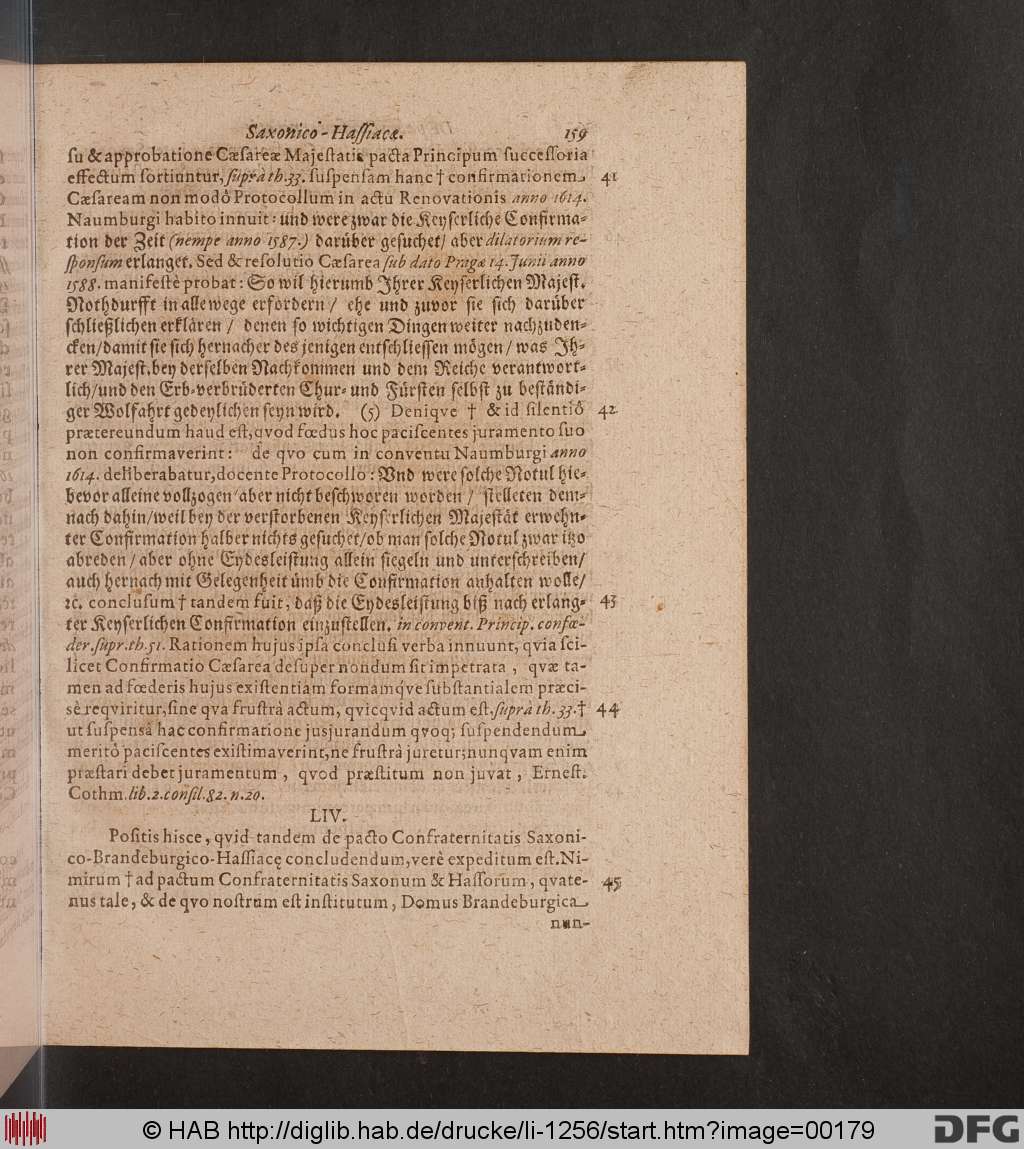 Saxonico-Hassiacæ. 159
su & approbatione Cæsareæ Majestatis pacta Principum successoria
effectum sortiuntur, suprà th. 33. suspensam hanc † confirmationem 41
Cæsaream non modò Protocollum in actu Renovationis anno 1614.
Naumburgi habito innuit: und were zwar die Keyserliche Confirma-
tion der Zeit (nempe anno 1587.) darüber gesuchet / aber dilatorium re-
sponsum erlanget. Sed & resolutio Cæsarea sub dato Pragæ 14. Junii anno
1588. manifestè probat: So wil hierumb Ihrer Keyserlichen Majest.
Nothdurfft in allewege erfordern / ehe und zuvor sie sich darüber
schließlichen erklären / denen so wichtigen Dingen weiter nachzuden-
cken / damit sie sich hernacher des jenigen entschliessen mögen / was Ih-
rer Majest. bey derselben Nachkommen und dem Reiche verantwort-
lich / und den Erb-verbrüderten Chur- und Fürsten selbst zu beständi-
ger Wolfahrt gedeylichen seyn wird. (5) Deniqve † & id silentiô 42
prætereundum haud est, qvod fœdus hoc paciscentes juramento suo
non confirmaverint: de qvo cum in conventu Naumburgi anno
1614. deliberabatur, docente Protocollo: Vnd were solche Notul hie-
bevor alleine vollzogen / aber nicht beschworen worden / stelleten dem-
nach dahin / weil bey der verstorbenen Keyserlichen Majestät erwehn-
ter Confirmation halber nichts gesuchet / ob man solche Notul zwar itzo
abreden / aber ohne Eydesleistung allein siegeln und unterschreiben /
auch hernach mit Gelegenheit ümb die Confirmation anhalten wolle /
ꝛc. conclusum † tandem fuit, daß die Eydesleistung biß nach erlang- 43
ter Keyserlichen Confirmation einzustellen. in convent. Princip. confœ-
der. supr. th. 51. Rationem hujus ipsa conclusi verba innuunt, qvia sci-
licet Confirmatio Cæsarea desuper nondum sit impetrata, qvæ ta-
men ad fœderis hujus existentiam formamq́ve substantialem præci-
sè reqviritur, sine qva frustrà actum, qvicqvid actum est, suprà th. 33. † 44
ut suspensâ hac confirmatione jusjurandum qvoq; suspendendum
meritò paciscentes existimaverint, ne frustrà juretur; nunqvam enim
præstari debet juramentum, qvod præstitum non juvat, Ernest.
Cothm. lib. 2. consil. 82. n. 20.
LIV.
Positis hisce, qvid tandem de pacto Confraternitatis Saxoni-
co-Brandeburgico-Hassiacę concludendum, verè expeditum est. Ni-
mirum † ad pactum Confraternitatis Saxonum & Hassorum, qvate- 45
nus tale, & de qvo nostrum est institutum, Domus Brandeburgica
nun-
© HAB http://diglib.hab.de/drucke/li-1256/start.htm?image=00179
DFG